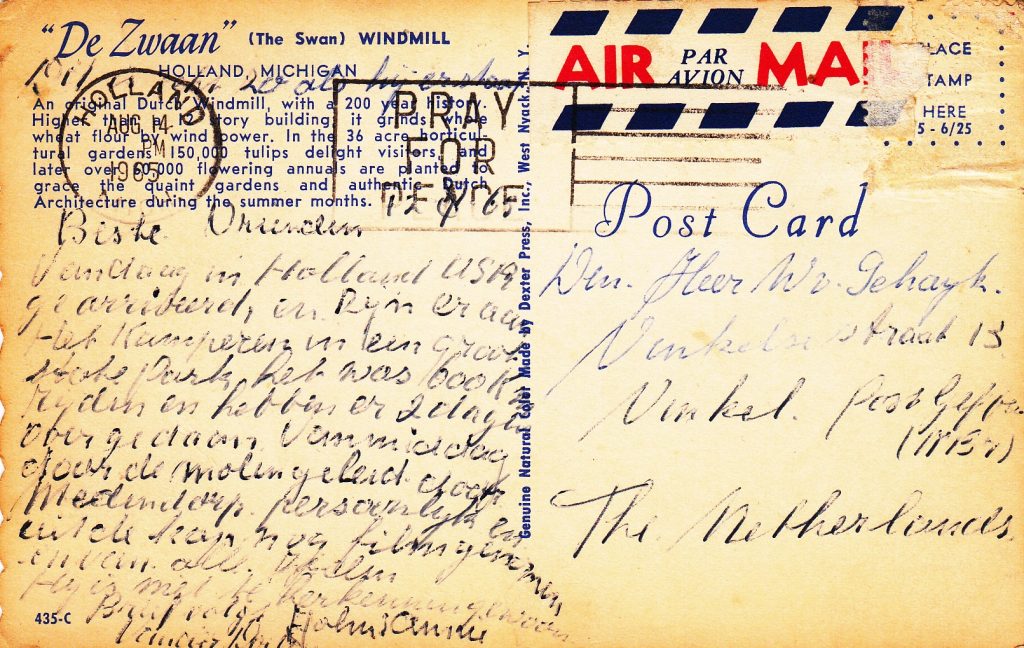 "De Zwaan" (The Swan) WINDMILL
HOLLAND, MICHIGAN
An original Dutch Windmill, with a 200 year history.
Higher than a 12 story building, it grinds whole
wheat flour by wind power. In the 36 acre horticul-
tural gardens 150,000 tulips delight visitors, and
later over 60,000 flowering annuals are planted to
grace the quaint gardens and authentic Dutch
Architecture during the summer months.
HOLLAND
AUG 14
PM
1965
PRAY
FOR
PEACE
65
Beste Vrienden
Vandaag in Holland USA
gearriveerd, en zyn er aan
Het Kamperen in een groot
State Park, het was 600 K
ryden en hebben er 2 dagen
over gedaan Vanmiddag
door de molen geleid door
Medendorp persoonlyk en
uit de kap nog film genomen
en van alle
Hy is met
Brief volgt
435-C
Genuine Natural Color Made by Dexter Press, Inc., West Nyack, N. Y.
AIR PAR AVION MA
PLACE
STAMP
HERE
5 - 6/25
Post Card
Den. Heer Wr. Gehayk.
Vinkelse straat 13
Vinkel. Post Geffen
(NBr)
The Netherlands